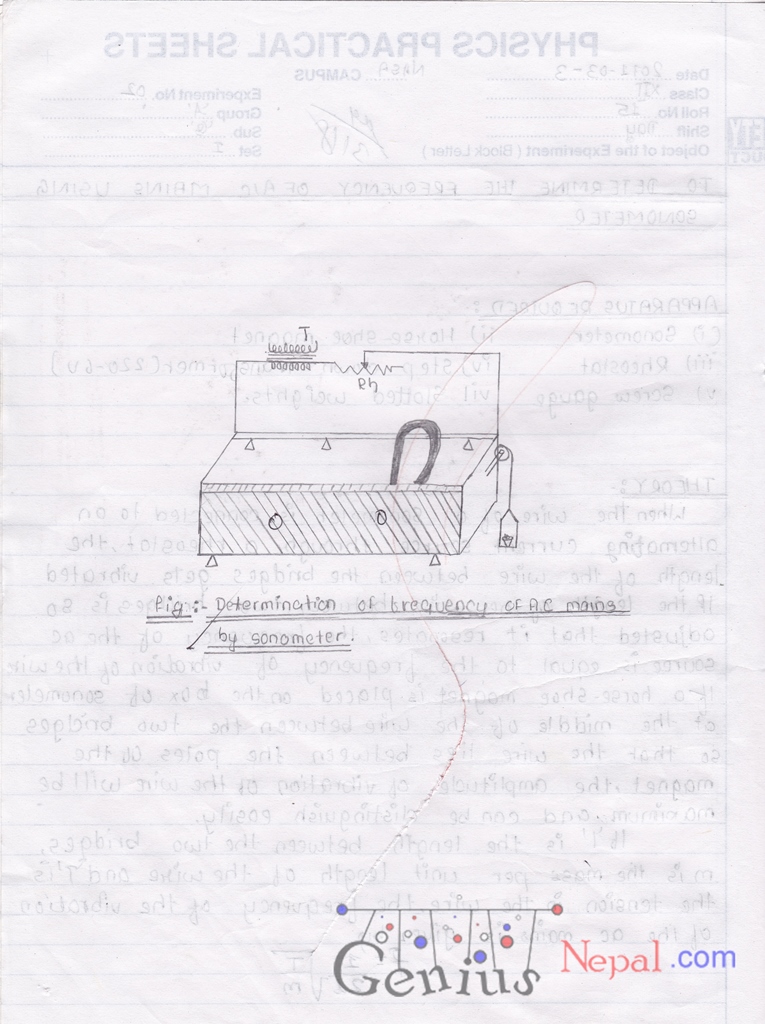 PHYSICS PRACTICAL SHEETS
Date 2011-03-3 CAMPUS NASA
Class XII Experiment No. 02
Roll No. 15 Group 'A'
Shift Day Sub
Object of the Experiment ( Block Letter ) Set I
TO DETERMINE THE FREQUENCY OF A/C MAINS USING
SONOMETER
APPARATUS REQUIRED:-
i) Sonometer ii) Horse shoe magnet
iii) Rheostat iv) Step transformer (220-6V)
v) Screw gauge vi) Slotted weights.
T
Rh
THEORY:-
When the wire of sonometer is connected to an
alternating current through a rheostat, the
length of the wire between the bridges gets vibrated
if the is so
Fig:- Determination of frequency of A.C mains
adjusted that it resonates, the of the ac
by sonometer.
source is equal to the frequency of vibration of the wire
If a horse-shoe magnet is placed on the box of sonometer
at the middle of the wire between the two bridges
so that the wire lies between the poles of the
magnet, the amplitude of vibration of the wire will be
maximum and can be distinguish easily.
If 'l' is the length between the two bridges,
m is the mass per unit length of the wire and 'T' is
the tension in the wire the frequency of the vibration
of the ac mains is given
T
m
Genius Nepal.com